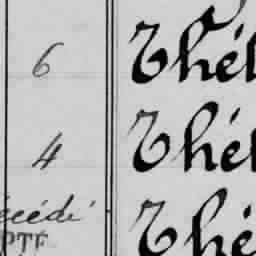 6 Thél
4 Thél
écédé Thé
OTE